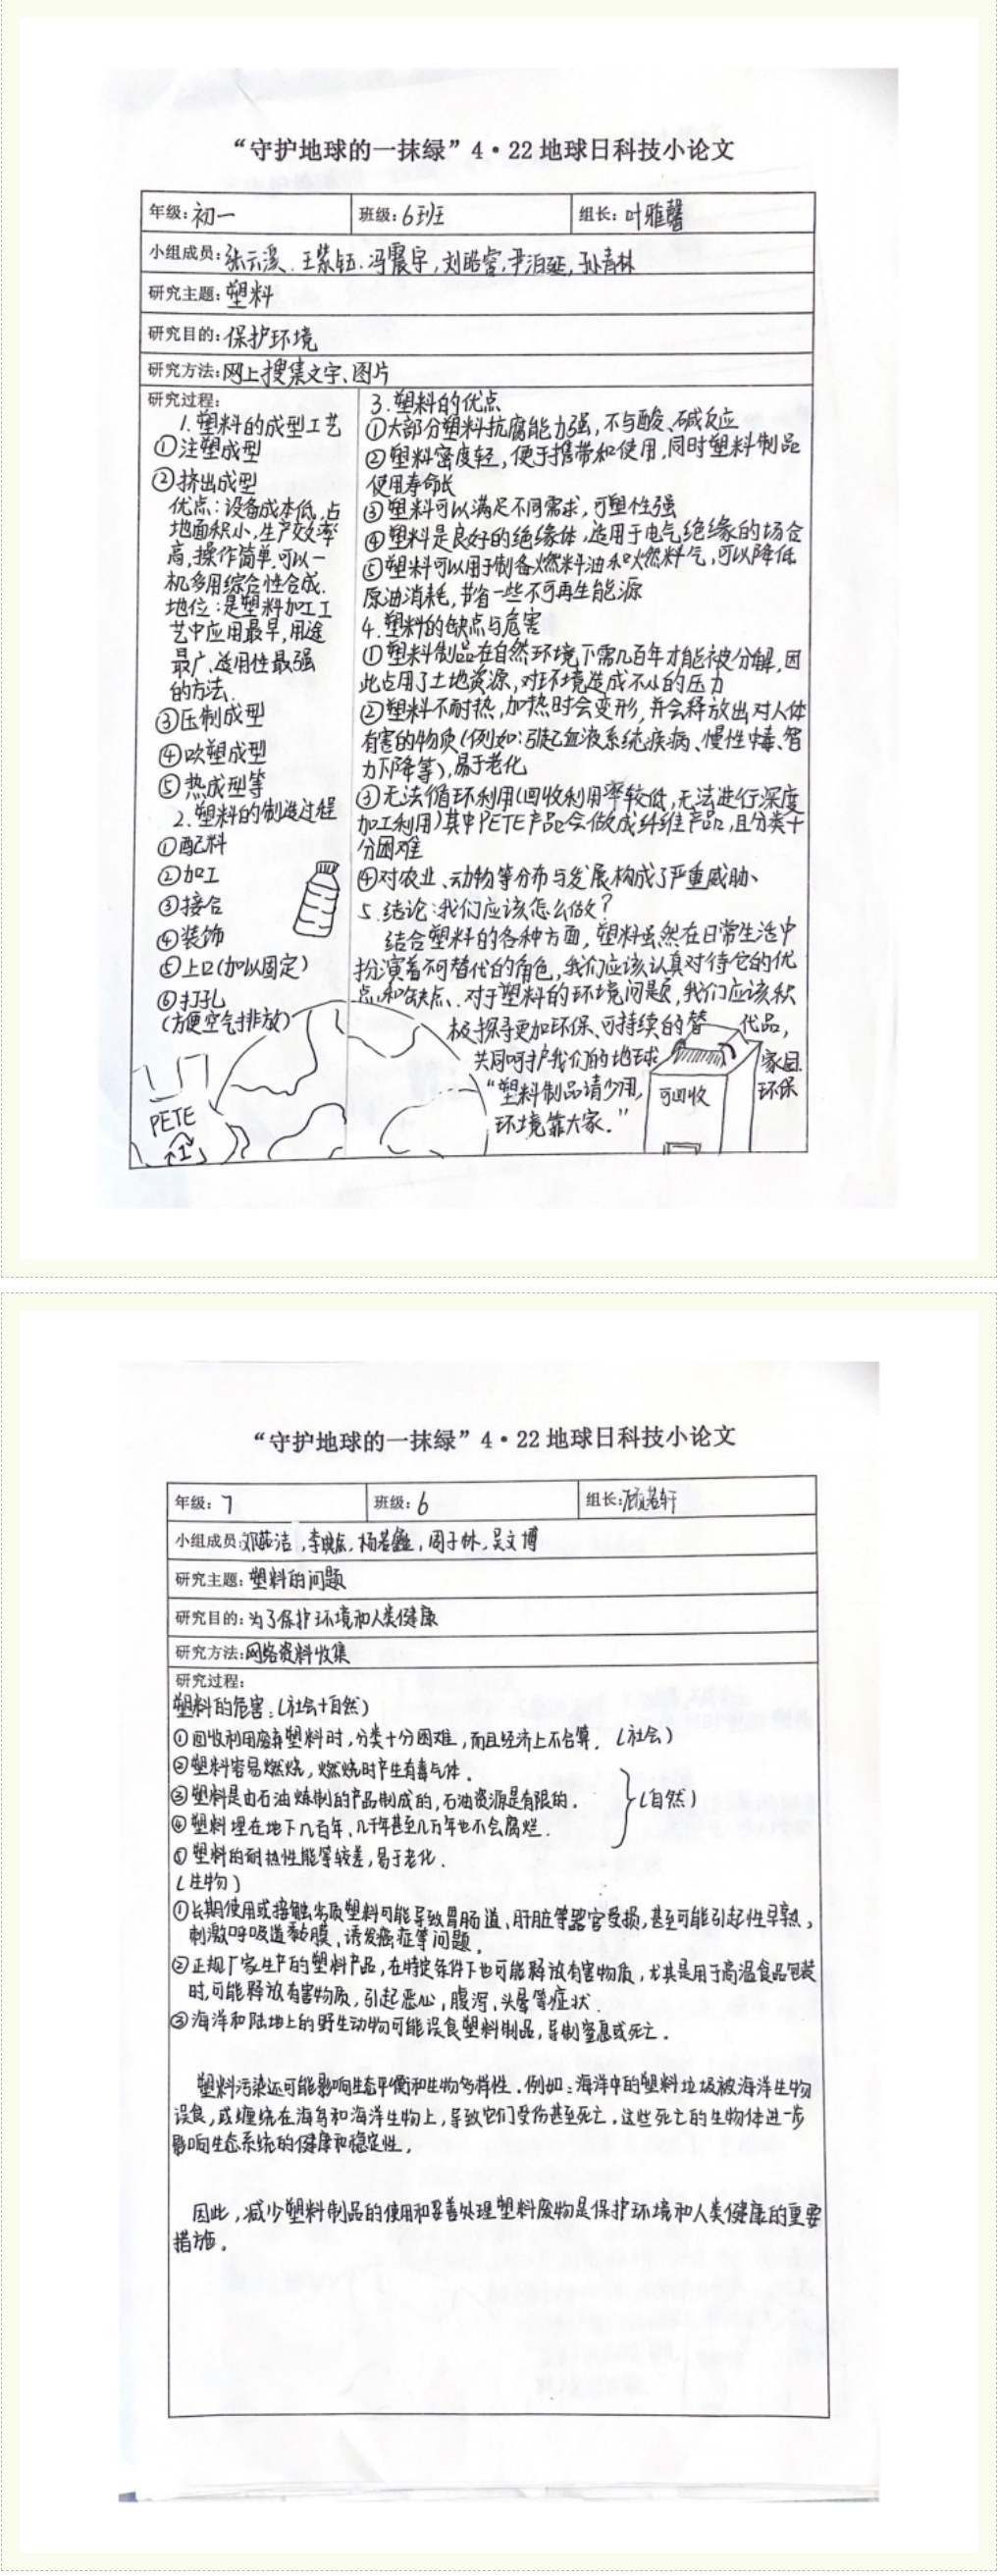 “守护地球的一抹绿”4·22地球日科技小论文
年级:初一 班级:6班 组长:叶雅馨
小组成员:张云溪、王紫钰、冯震宇,刘昭睿,尹泊延,孙青林
研究主题:塑料
研究目的:保护环境
研究方法:网上搜集文字、图片
研究过程:
1.塑料的成型工艺
①注塑成型
②挤出成型
优点:设备成本低,占
地面积小,生产效率
高,操作简单.可以一
机多用综合性合成.
地位:是塑料加工工
艺中应用最早,用途
最广、适用性最强
的方法.
③压制成型
④吹塑成型
⑤热成型等
2.塑料的制造过程
①配料
②加工
③接合
④装饰
⑤上口(加以固定)
⑥打孔
(方便空气排放)
PETE
1
3.塑料的优点
①大部分塑料抗腐能力强,不与酸、碱反应
②塑料密度轻,便于携带和使用,同时塑料制品
使用寿命长
③塑料可以满足不同需求,可塑性强
④塑料是良好的绝缘体,适用于电气绝缘的场合
⑤塑料可以用于制备燃料油和燃料气,可以降低
原油消耗,节省一些不可再生能源
4.塑料的缺点与危害
①塑料制品在自然环境下需几百年才能被分解,因
此占用了土地资源,对环境造成不小的压力
②塑料不耐热,加热时会变形,并会释放出对人体
有害的物质(例如:引起血液系统疾病、慢性中毒、智
力下降等),易于老化
③无法循环利用(回收利用率较低,无法进行深度
加工利用)其中PETE产品会做成纤维产品,且分类十
分困难
④对农业、动物等分布与发展构成了严重威胁、
5.结论:我们应该怎么做?
结合塑料的各种方面,塑料虽然在日常生活中
扮演着不可替代的角色,我们应该认真对待它的优
点和缺点.对于塑料的环境问题,我们应该积
极探寻更加环保、可持续的替代品,
共同呵护我们的地球家园.
“塑料制品请少用,环保
环境靠大家.”
可回收
“守护地球的一抹绿”4·22地球日科技小论文
年级:7 班级:6 组长:顾若轩
小组成员:邓茹洁,李,杨若鑫,周子林,吴文博
研究主题:塑料的问题
研究目的:为了保护环境和人类健康
研究方法:网络资料收集
研究过程:
塑料的危害:(社会+自然)
①回收利用废弃塑料时,分类十分困难,而且经济上不合算.(社会)
②塑料容易燃烧,燃烧时产生有毒气体.
③塑料是由石油炼制的产品制成的,石油资源是有限的.(自然)
④塑料埋在地下几百年、几千年甚至几万年也不会腐烂.
⑤塑料的耐热性能等较差,易于老化.
(生物)
①长期使用或接触劣质塑料可能导致胃肠道、肝脏等器官受损,甚至可能引起性早熟,
刺激呼吸道黏膜、诱发癌症等问题.
②正规厂家生产的塑料产品,在特定条件下也可能释放有害物质,尤其是用于高温食品包装
时,可能释放有害物质,引起恶心,腹泻,头晕等症状.
③海洋和陆地上的野生动物可能误食塑料制品,导制窒息或死亡.
塑料污染还可能影响生态平衡和生物多样性.例如:海洋中的塑料垃圾被海洋生物
误食,或缠绕在海鸟和海洋生物上,导致它们受伤甚至死亡.这些死亡的生物体进一步
影响生态系统的健康和稳定性.
因此,减少塑料制品的使用和妥善处理塑料废物是保护环境和人类健康的重要
措施.